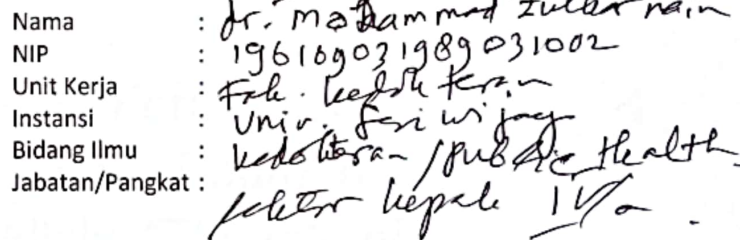 Nama : dr. Mohammad Zulkarnain
NIP : 196109031989031002
Unit Kerja : Fak. kedokteran
Instansi : Univ. Sriwijaya
Bidang Ilmu : kedokteran / public Health
Jabatan/Pangkat : Lektor kepala IV/a